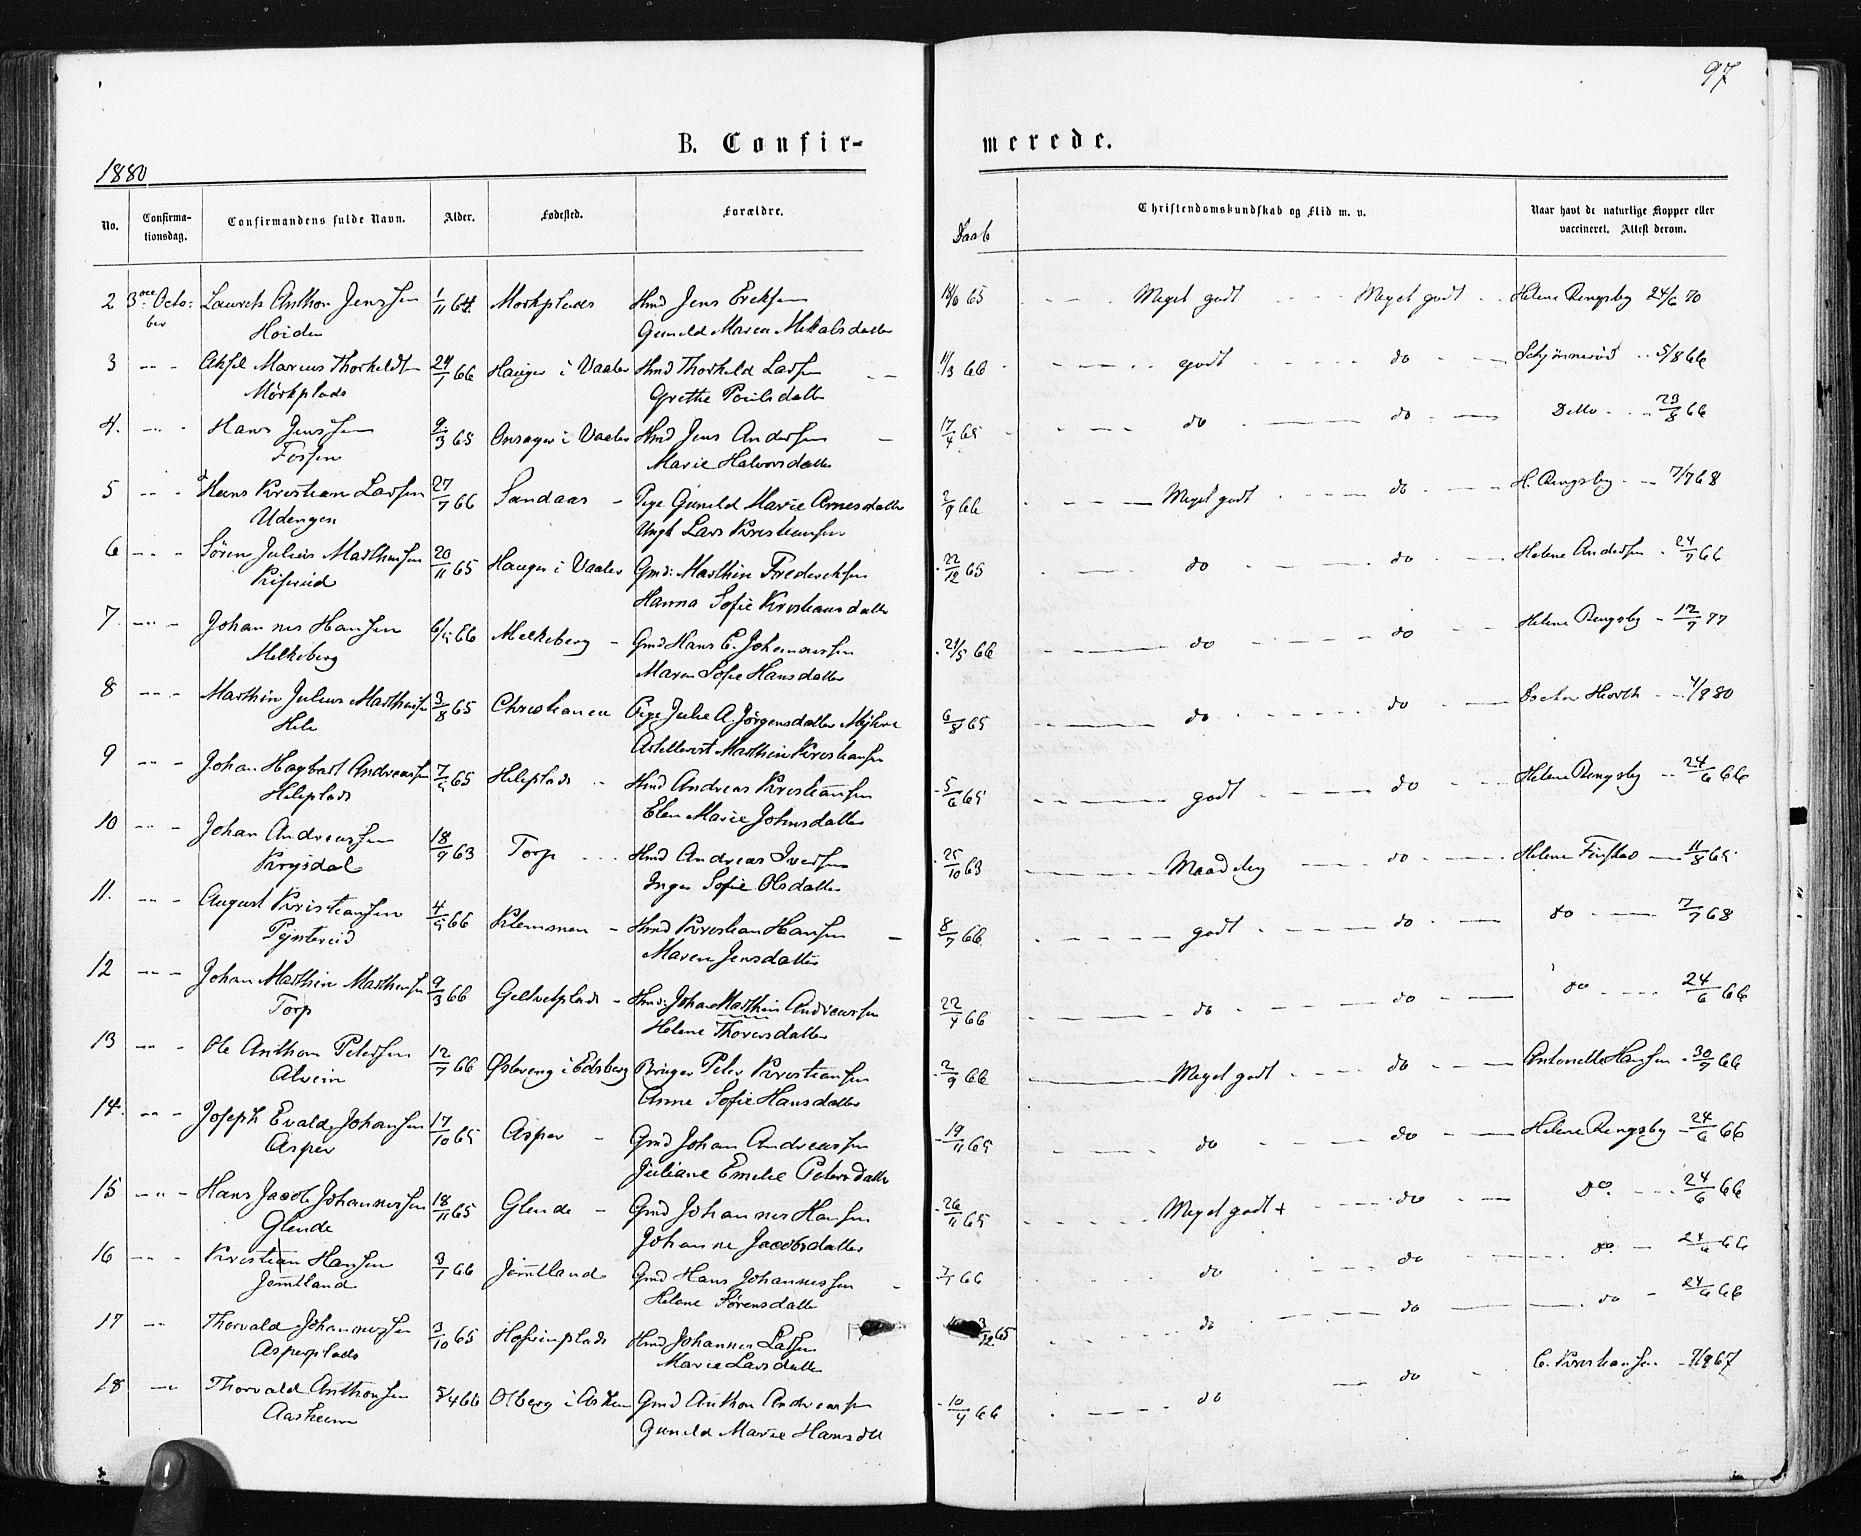 97
B. Confir-
merede.
1880
No. Confirma-tionsdag. Confirmandens fulde Navn. Alder. Fødested. Forældre. Daab Christendomskundskab og Flid m. v. Naar havt de naturlige Kopper eller vaccineret. Attest derom.
2 3die Octo- Laurits Anthon Jenssen 1/11 64 Mørkplads Hmd Jens Ereksen 65 Meget godt Meget godt Helene Rengsby 24/6 70
ber Høiden Gunild Maren Mikalsdatter
3 Aksel Marius Thorkildt 24/1 66 Hauger i Vaaler Hmd Thorkild Larsen 11/3 66 godt do Schjønnerød 5/8 66
Mørkplads Grethe Poulsdatter
4. Hans Jenssen 9/3 65 Onsager i Vaaler Hmd Jens Andersen 17/4 65 do do Ditto 23/8 66
Fossen Marie Halvorsdatter
5 Hans Kristian Larsen 27/7 66 Sandaas Pige Gunild Marie Arnesdatter 2/9 66 Meget godt do H. Rengsby 7/7 68
Udengen Ungk Lars Kristiansen
6 Søren Julius Marthinsen 20/11 65 Hauger i Vaaler Gmd: Marthin Frederiksen 22/12 65 do do Helene Andersen 24/7 66
Hanna Sofie Kristiansdatter
7. Johannes Hansen 6/5 66 Melkeberg Gmd Hans E. Johannessen 21/5 66 do do Helene Rengsby 12/7 77
Melkeberg Maren Sofie Hansdatter
8 Marthin Julius Marthinsen 3/8 65 Christiania Pige Julie A. Jørgensdatter Myhre 6/8 65 do do 4/8 80
Heli Marthin Kristiansen
9 Johan Hagbart Andreassen 7/5 65 Heliplads Hmd Andreas Kristiansen 5/6 65 godt do Helene Rengsby 24/6 66
Heliplads Elen Marie Johnsdatter
10 Johan Andreassen 18/9 63 Torp Hmd Andreas Iversen 25/10 63 Maadelig do Helene Finstad 11/8 65
Krysdal Inger Sofie Olsdatter
11. August Kristiansen 4/5 66 Klemmen Hmd Kristian Hansen 8/7 66 godt do do 7/7 68
Maren Jensdatter
12 Johan Marthin Marthinsen 9/3 66 Geltvetplads Hmd: Johan Marthin Andreassen 22/4 66 do do do 24/6 66
Torp Helene Thorersdatter
13 Ole Anthon Petersen 12/7 66 Østereng i Edsberg Bruger Peter Kristiansen 2/9 66 Meget godt do Antonette Hansen 30/9 66
Alvein Anne Sofie Hansdatter
14. Joseph Evald Johansen 17/10 65 Asper Gmd Johan Andreassen 19/11 65 do do Helene Rengsby 24/6 66
Asper Juliane Emelie Petersdatter
15 Hans Jacob Johannessen 18/11 65 Glende Gmd Johannes Hansen 26/11 65 Meget godt + do do. 24/6 66
Glende Johanne Jacobsdatter
16 Kristian Hansen 3/1 66 Jømtland Gmd Hans Johannessen 7/1 66 do do do. 24/6 66
Jømtland Helene Sørensdatter
17 Thorvald Johannessen 3/10 65 Hofvinplads Hmd Johannes Larsen 3/12 65 do do do 24/6 66
Asperplads Marie Larsdatter
18 Thorvald Anthonsen 5/4 66 Olberg i Askim Gmd Anthon Andreassen 10/4 66 do do C. Kristiansen 7/9 67
Aasheim Gunild Marie Hansdtt